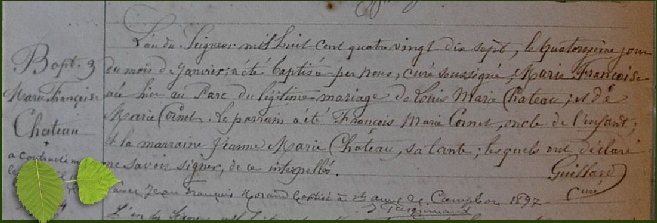 Bapt. 3
Marie Françoise
Château
L'an du Seigneur mil huit cent quatre vingt dix sept, le quatorzième jour
du mois de Janvier, a été baptisée par nous, curé soussigné, Marie Françoise
née hier au Parc du légitime mariage de Louis Marie Château, et de
Marie Cornet. Le parrain a été François Marie Cornet, oncle de l'enfant;
et la marraine Jeanne Marie Château, sa tante; lesquels ont déclaré
ne savoir signer, de ce interpellés.
Guillard
Curé
Jean François Morand baptisé à de Campbon 1897